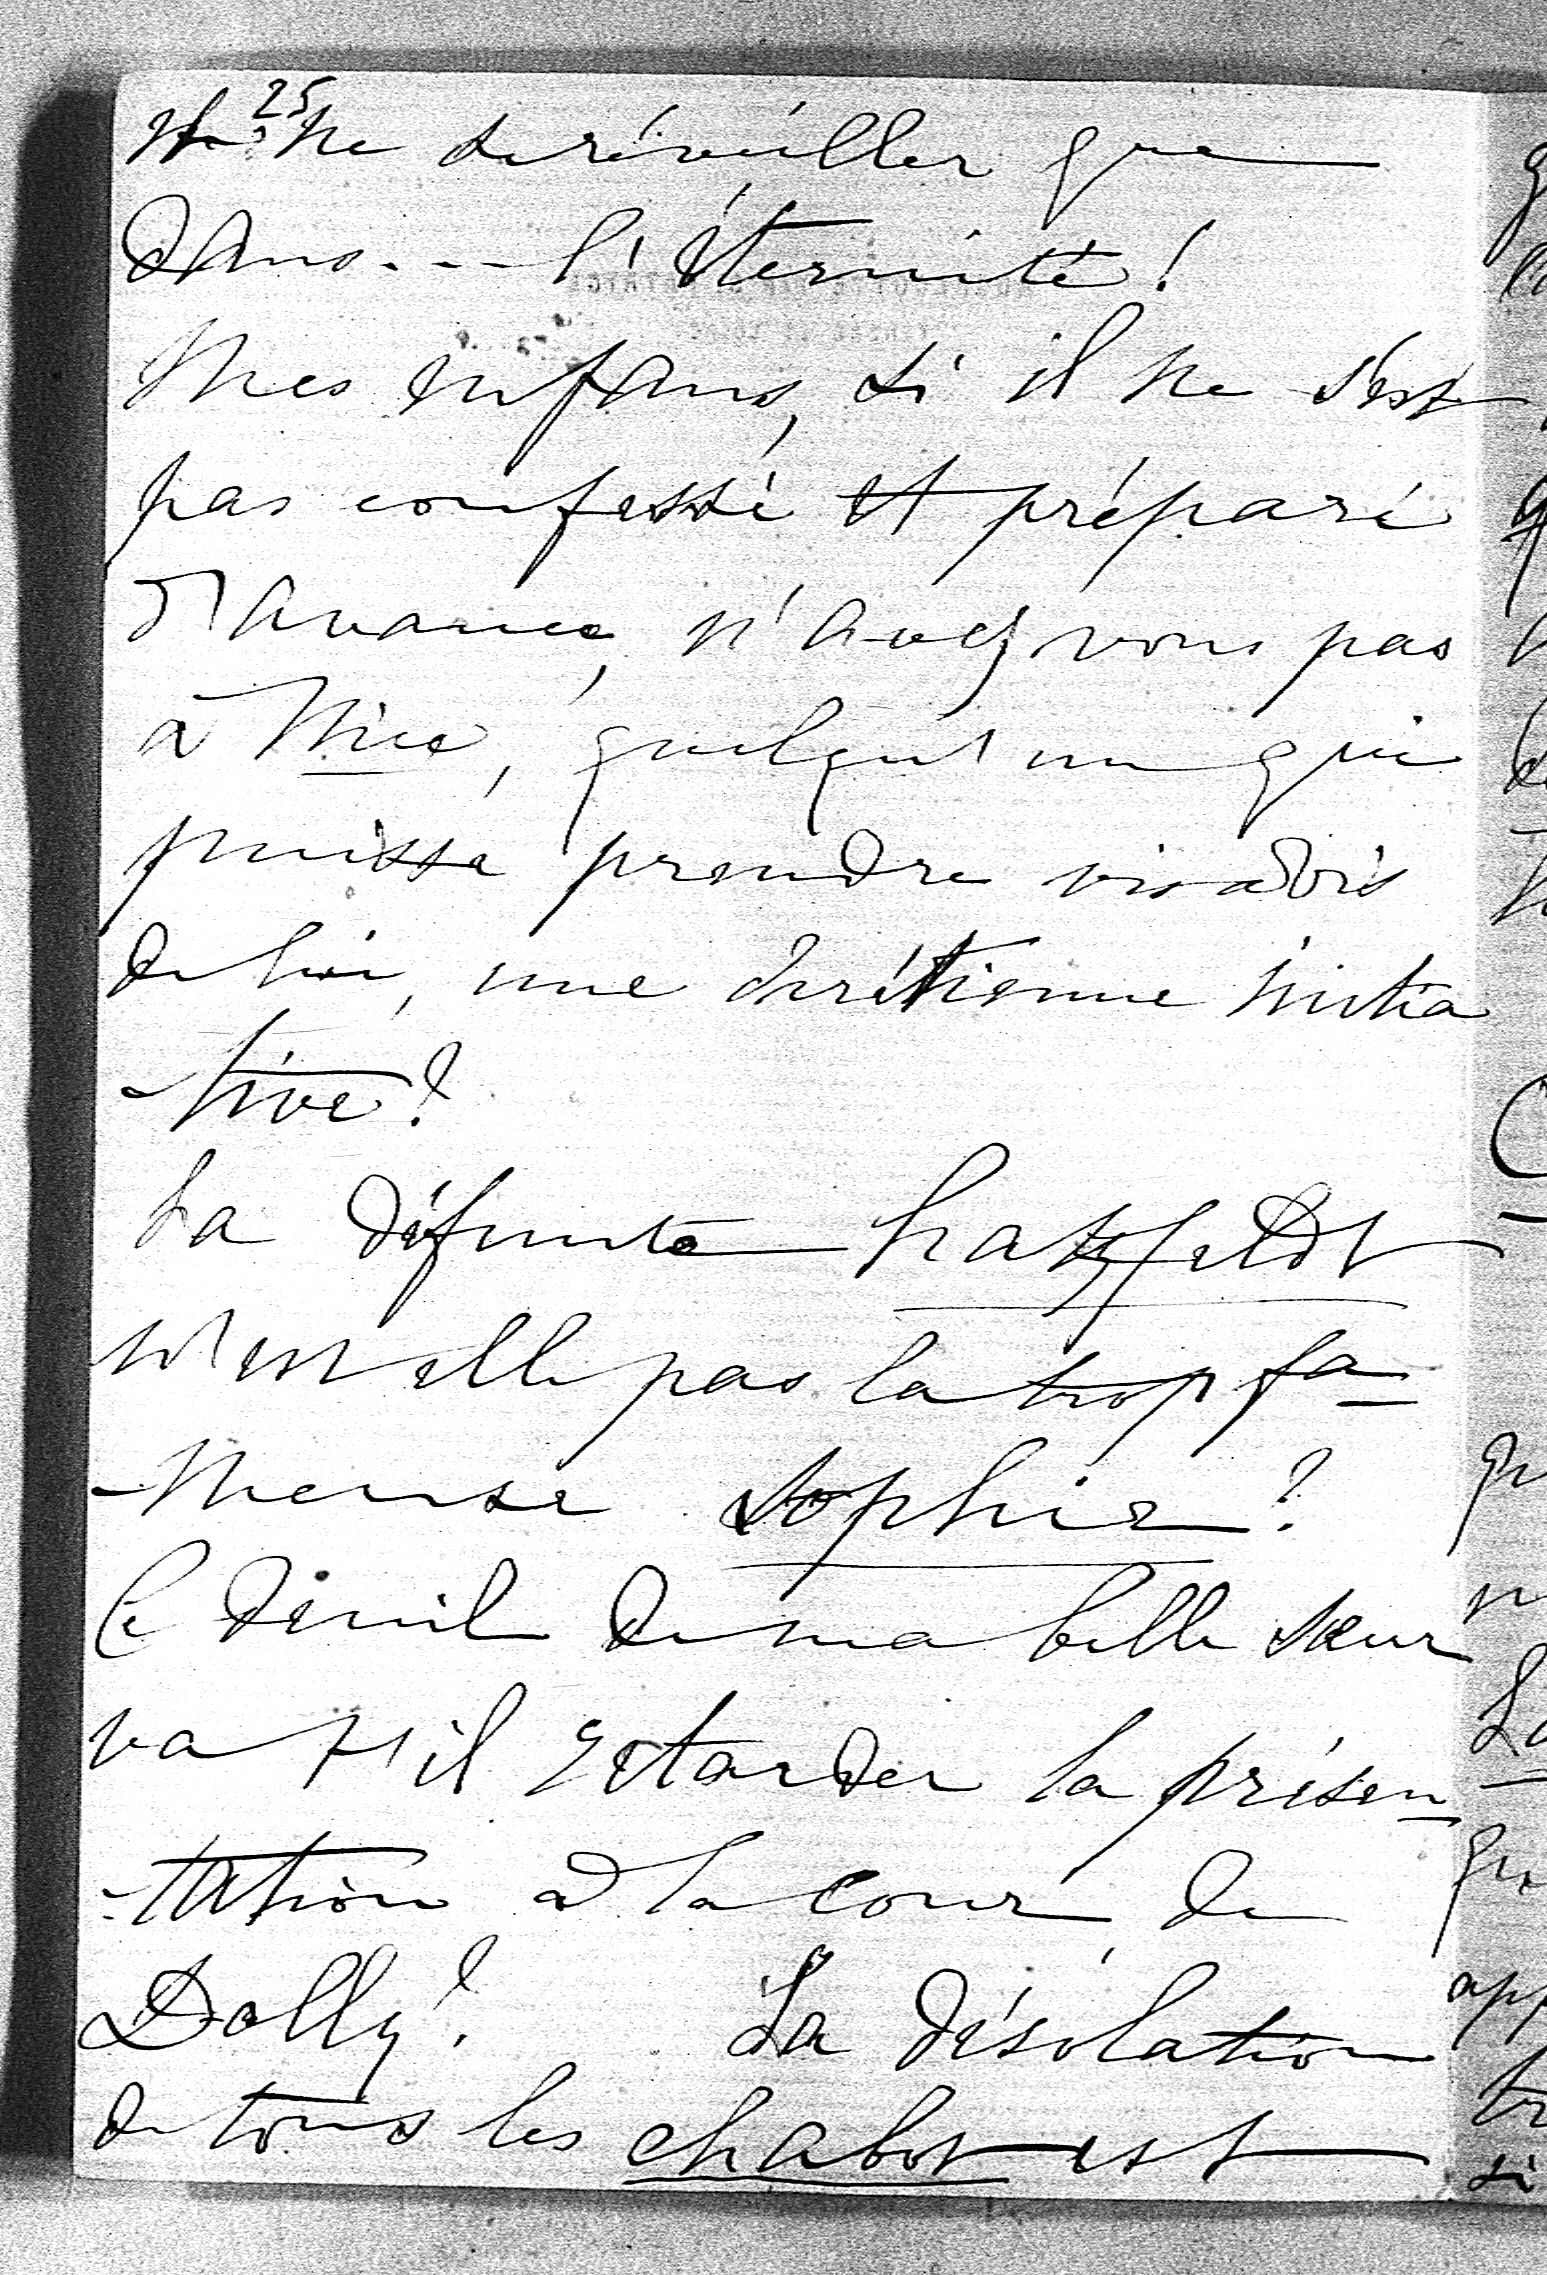 25
ne se réveiller que
dans --- l'éternité!
Mes enfans, si il ne s'est
pas confessé et préparé
d'avance, n'avez vous pas
à Nice, quelqu'un qui
puisse prendre vis à vis
de lui, une chrétienne initia
-tive?
La défunte hatzfeldt
n'est elle pas la trop fa-
-meuse Sophie?
Ce deuil de ma belle sœur
va t'il retarder la présen-
-tation à la cour, de
Dolly? La désolation
de tous les chabot est